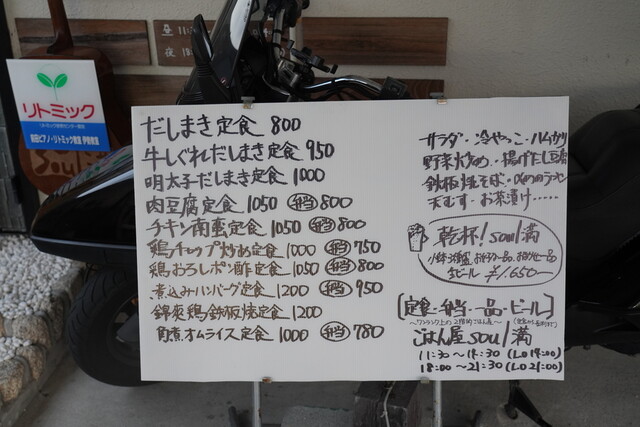 昼 11:
夜 18:
リトミック
soul
だしまき定食 800
牛しぐれだしまき定食 950
明太子だしまき定食 1000
肉豆腐定食 1050 弁当 800
チキン南蛮定食 1050 弁当 800
鶏チャップ炒め定食 1000 弁当 750
鶏おろしポン酢定食 1050 弁当 800
煮込みハンバーグ定食 1200 弁当 950
錦爽鶏鉄板焼定食 1200
角煮オムライス定食 1000 弁当 780
サラダ・冷やっこ・ハムカツ
野菜炒め・揚げだし豆腐
鉄板焼そば・〆のラーメン
天むす・お茶漬け……
乾杯!soul満
生ビール ¥1,650-
[定食・弁当・一品・ビール]
ごはん屋 soul満
11:30〜14:30 (LO14:00)
18:00〜21:30 (LO21:00)